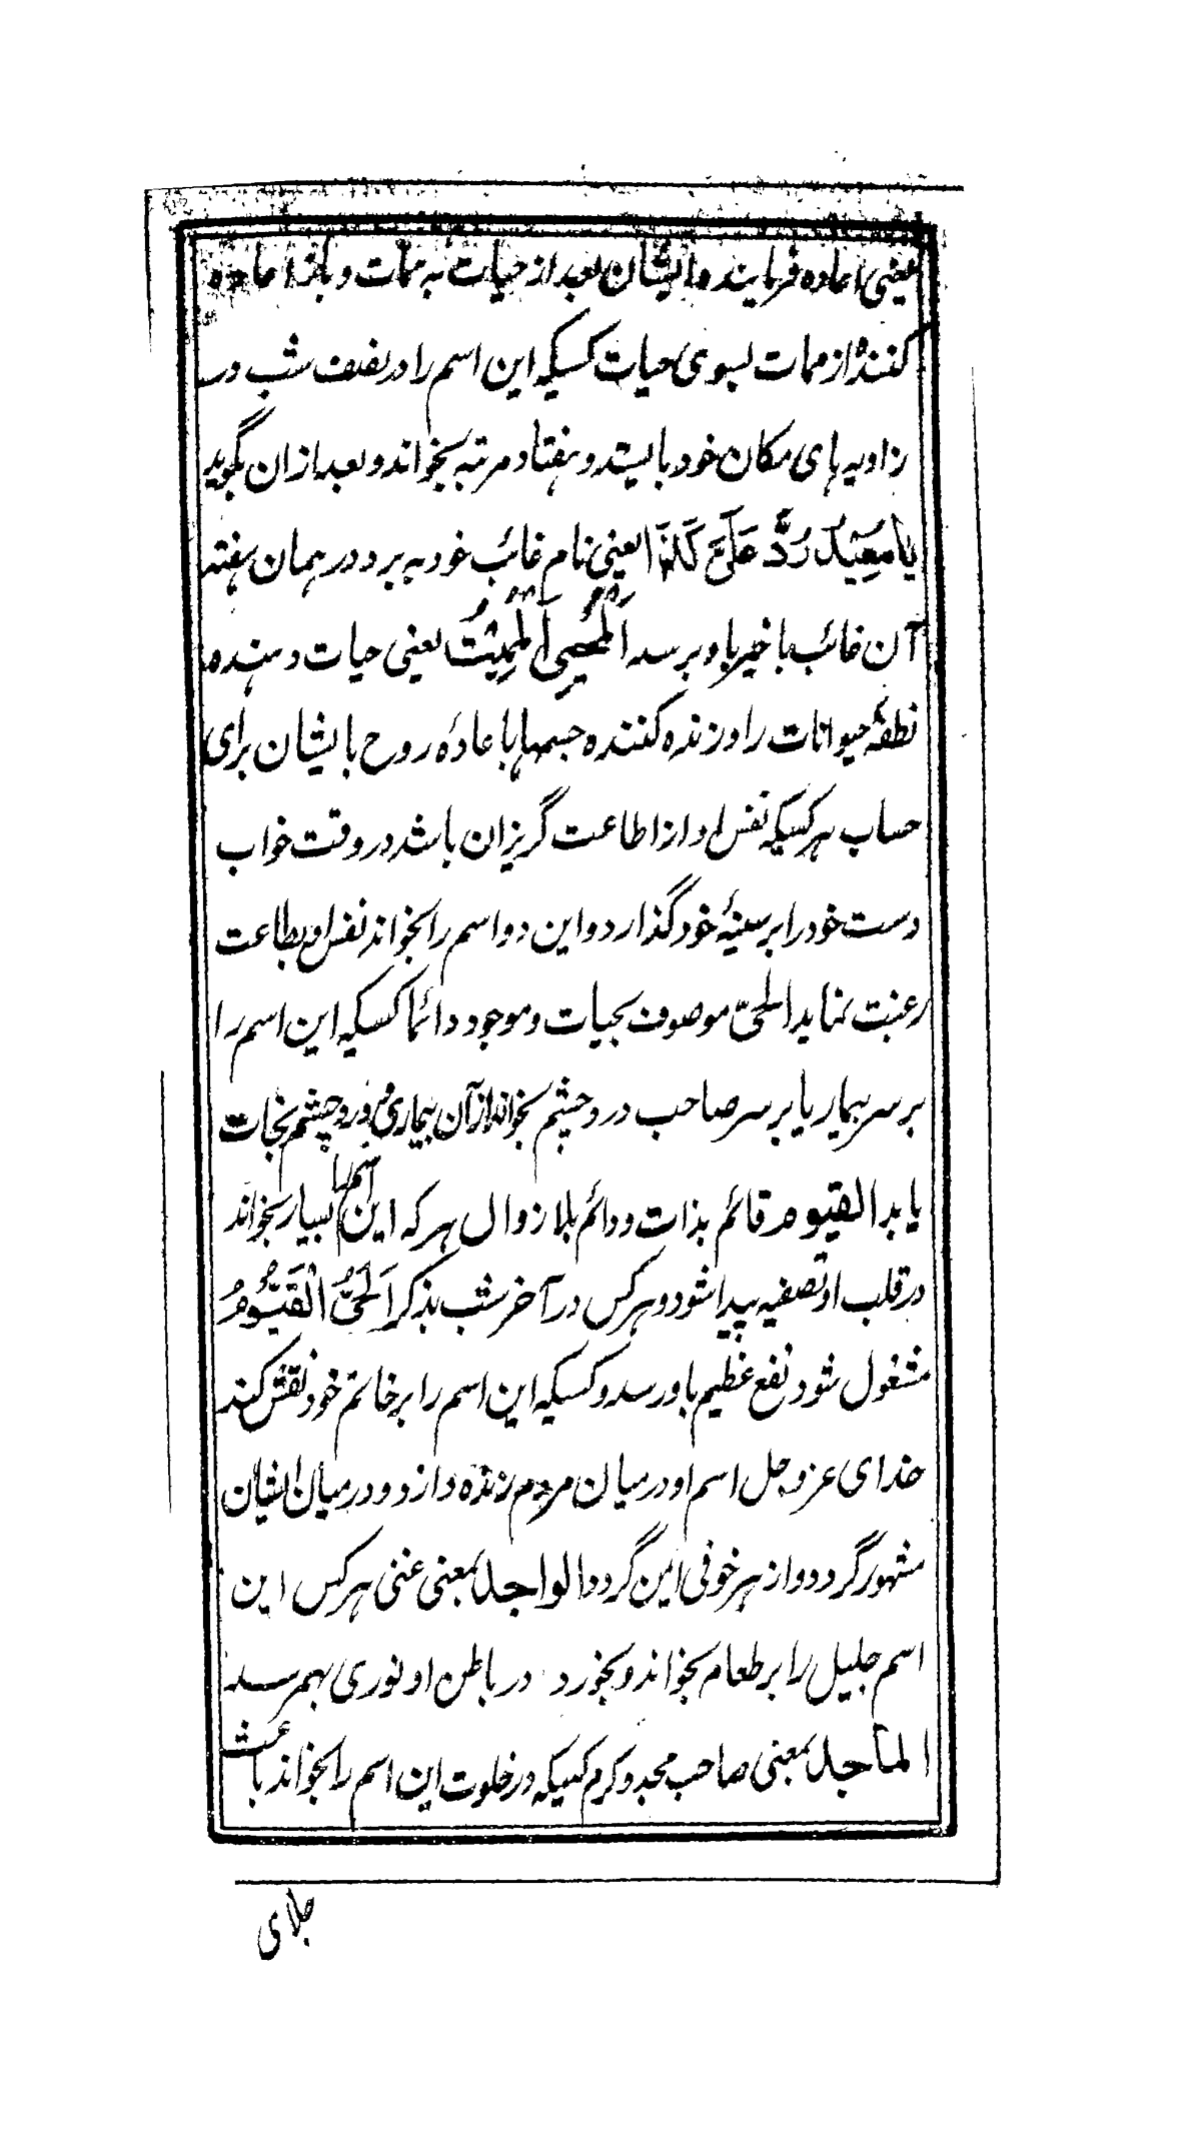 یعنی اعاده فرماینده ایشان بعد از حیات به ممات و باز اعاده
کنندهٔ از ممات بسوی حیات کسیکه این اسم را در نصف شب در
زاویه های مکان خود بایستد و هفتاد مرتبه بخواند و بعد ازان بگوید
یَا مُعِیدُ رُدَّ عَلَیَّ کَذَا یعنی نام غائب خود به برد در همان هفته
آن غائب یا خیر باو برسد المُحْیِی اَلْمُمِیْتُ یعنی حیات دهنده
نطفهٔ حیوانات را و زنده کننده جسمها باعادهٔ روح بایشان برای
حساب هر کسیکه نفس او از اطاعت گریزان باشد در وقت خواب
دست خود را بر سینهٔ خود گذارد و این دو اسم را بخواند نفس او بطاعت
رغبت نماید الحیّ موصوف بحیات و موجود دائما کسیکه این اسم را
بر سر بیمار یا بر سر صاحب درد چشم بخواند از آن بیماری و درد چشم نجات
یابد القیوم قائم بذات و دائم بلا زوال هر که این اسم را بسیار بخواند
در قلب او تصفیه پیدا شود و هر کس در آخر شب بذکر اَلْحَیُّ الْقَیُّومُ
مشغول شود نفع عظیم باو رسد و کسیکه این اسم را بر خاتم خود نقش کند
خدای عز و جل اسم او در میان مردم زنده دارد و در میان ایشان
مشهور گردد و از هر خوفی ایمن گردد الواجد بمعنی غنی هر کس این
اسم جلیل را بر طعام بخواند و بخورد در باطن او نوری بهم رسد
الماجد بمعنی صاحب مجد و کرم کسیکه در خلوت این اسم را بخواند باعث
جلای